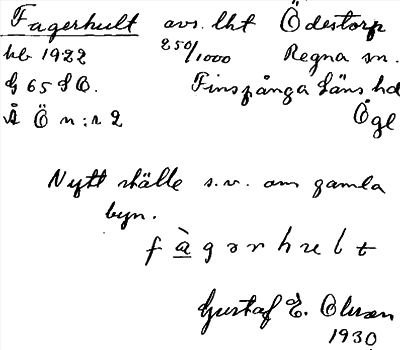 Fagerhult avs. lht Ödestorp
hb 1922 250/1000 Regna sn.
G 65 SO. Finspånga läns hd
Å Ö n:r 2 Ögl
Nytt ställe s.v. om gamla
byn.
f à g ə r h u l t
Gustaf E. Olsson
1930